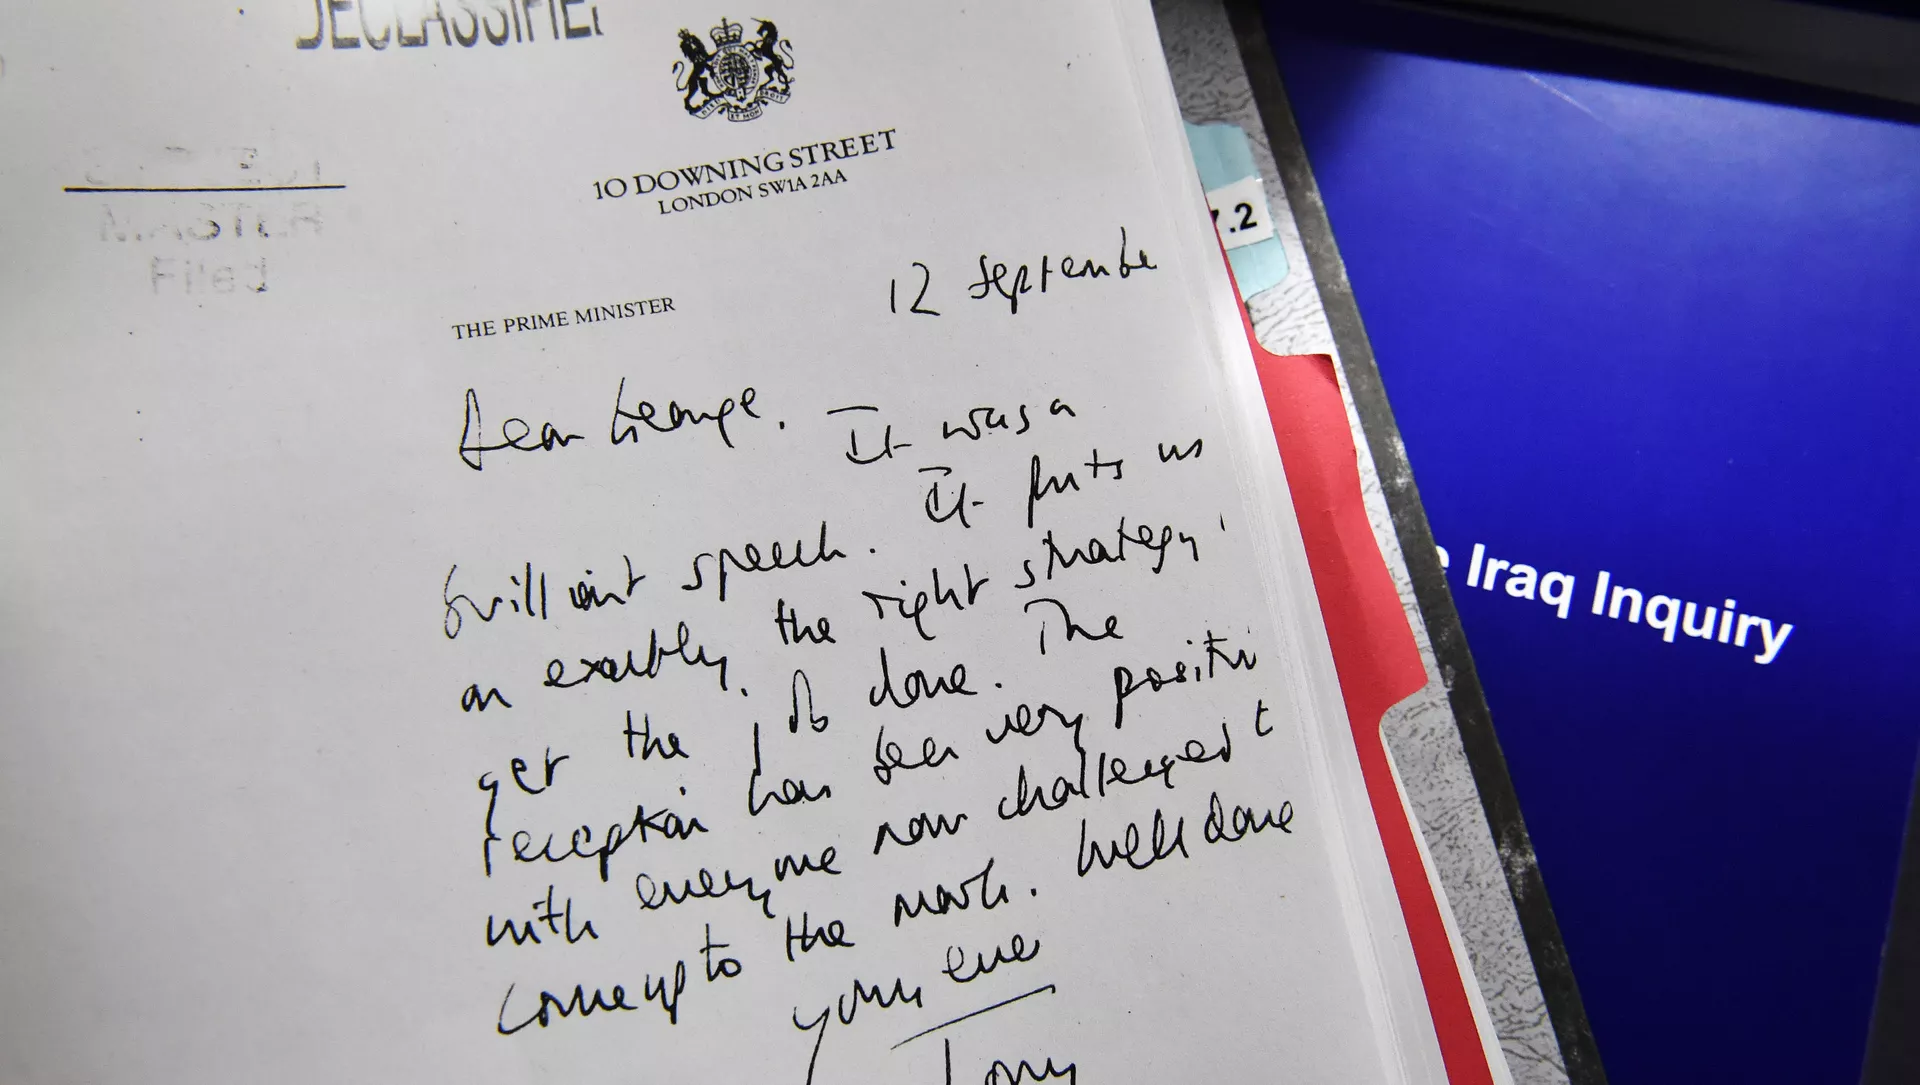 DECLASSIFIED
DIEU ET MON DROIT
10 DOWNING STREET
LONDON SW1A 2AA
MASTER
Filed
THE PRIME MINISTER
12 September
Dear George. It was a
brilliant speech. It puts us
on exactly the right strategy
get the job done. The
reception has been very positive
with everyone now challenged t
come up to the mark. Well done
Yours ever
Tony
7.2
e Iraq Inquiry